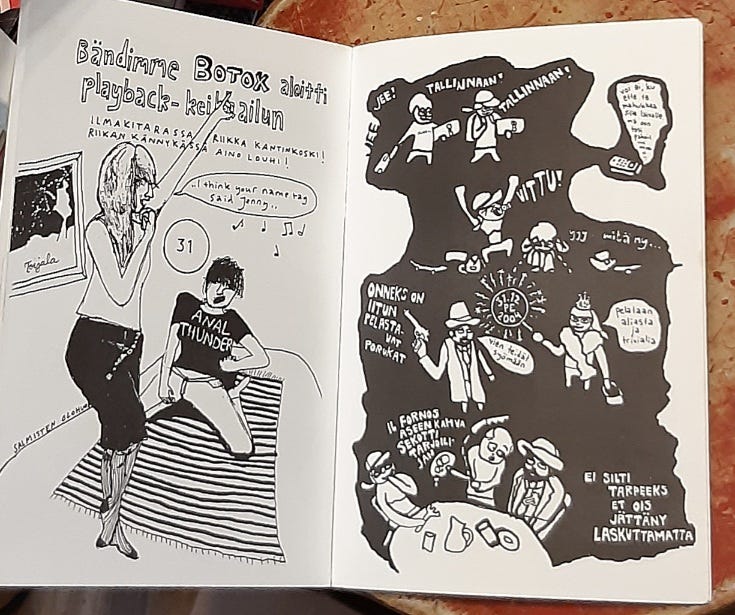 Bändimme BOTOX aloitti
playback-keikkailun
ILMAKITARASSA RIIKKA KANTINKOSKI!
RIIKAN KÄNNYKÄSSÄ AINO LOUHI!
..I think your name tag
said Jenny..
31
Torjala
ANAL
THUNDER
SALMISTEN OLOHUONE
JEE JEE!
TALLINNAAN!
TALLINNAAN!
voi ei, ku
VITTU!
yyy mitä ny...
ONNEKS ON
IITUN
PELASTA-
VAT
PORUKAT
31.12
PE
2004
vien teidät
syömään
pelataan
aliasta
ja
trivialia
IL FORNOS
ASEENKAHVA
SEKOTTI
TARJOILI-
JAN
EI SILTI
TARPEEKS
ET OIS
JÄTTÄNY
LASKUTTAMATTA